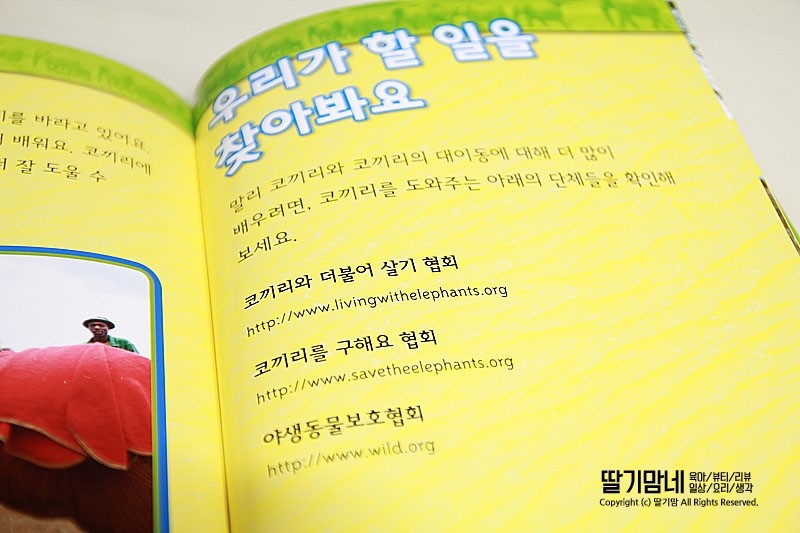 를 바라고 있어요.
배워요. 코끼리에
잘 도울 수
우리가 할 일을
찾아봐요
말리 코끼리와 코끼리의 대이동에 대해 더 많이
배우려면, 코끼리를 도와주는 아래의 단체들을 확인해
보세요.
코끼리와 더불어 살기 협회
http://www.livingwithelephants.org
코끼리를 구해요 협회
http://www.savetheelephants.org
야생동물보호협회
http://www.wild.org
딸기맘네 육아/뷰티/리뷰
일상/요리/생각
Copyright (c) 딸기맘 All Rights Reserved.